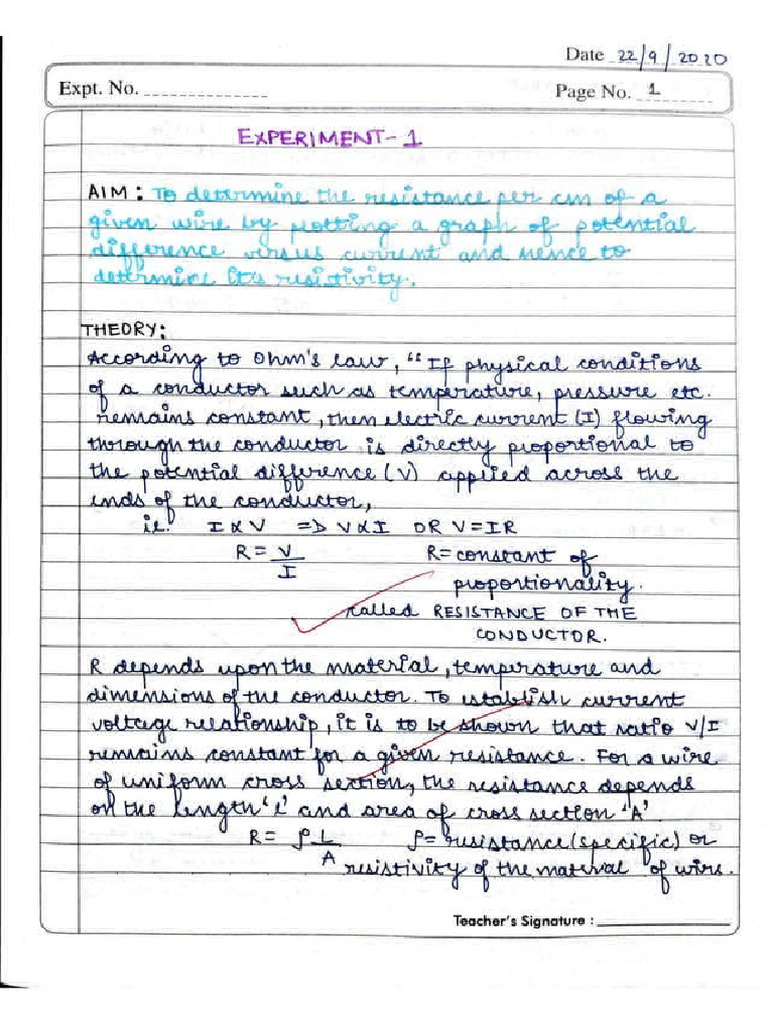 Date 22/9/2020
Expt. No.
Page No. 1
EXPERIMENT-1
AIM: To determine the resistance per cm of a
given wire by plotting a graph of potential
difference versus current and hence to
determine its resistivity.
THEORY:
According to Ohm's law, "If physical conditions
of a conductor such as temperature, pressure etc.
remains constant, then electric current (I) flowing
through the conductor is directly proportional to
the potential difference (V) applied across the
ends of the conductor,
ie. I ∝ V ⇒ V ∝ I OR V = IR
R = V/I R = constant of
proportionality.
called RESISTANCE OF THE
CONDUCTOR.
R depends upon the material, temperature and
dimensions of the conductor. To establish current
voltage relationship, it is to be shown that ratio V/I
remains constant for a given resistance. For a wire
of uniform cross section, the resistance depends
on the length 'l' and area of cross section 'A'.
R = ρ L/A ρ = resistance (specific) or
resistivity of the material of wire.
Teacher's Signature :